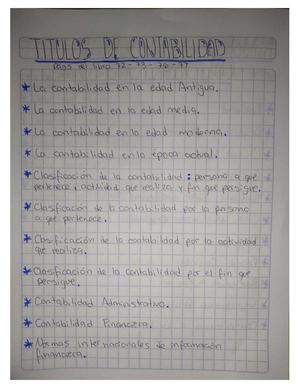 TITULOS DE CONTABILIDAD
Pags del libro 72 - 73 - 76 - 77
* La contabilidad en la edad Antigua.
* La contabilidad en la edad media.
* La contabilidad en la edad moderna.
* La contabilidad en la época actual.
* Clasificación de la contabilidad : persona a que
pertenece, actividad que realiza y fin que persigue.
* Clasificación de la contabilidad por la persona
a que pertenece.
* Clasificación de la contabilidad por la actividad
que realiza.
* Clasificación de la contabilidad por el fin que
persigue.
* Contabilidad Administrativa.
* Contabilidad Financiera.
* Normas internacionales de información
financiera.